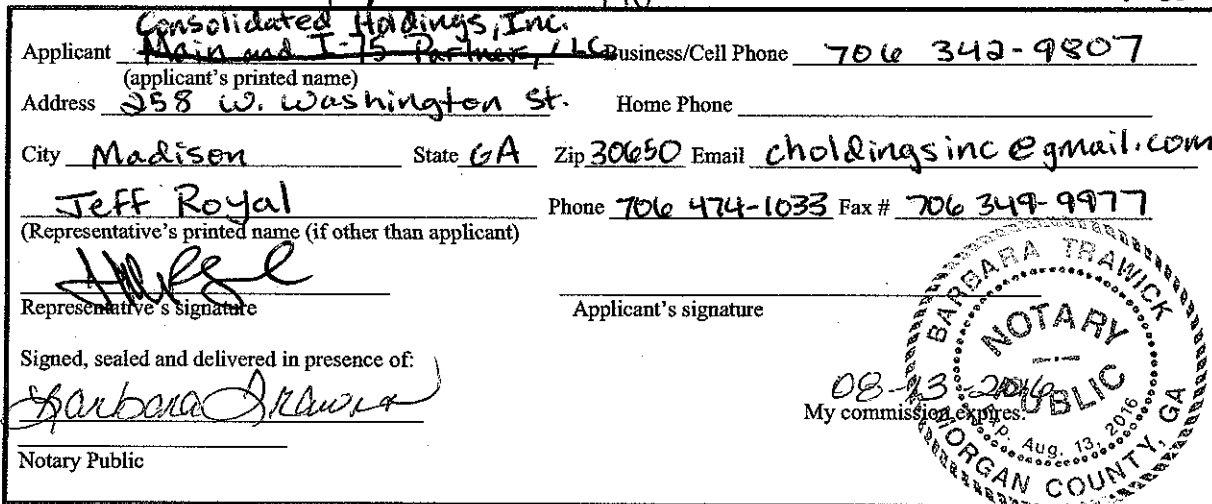 Consolidated Holdings, Inc.
Applicant Main and I-75 Partners, LLC Business/Cell Phone 706 342-9807
(applicant's printed name)
Address 258 W. Washington St. Home Phone
City Madison State GA Zip 30650 Email choldingsinc@gmail.com
Jeff Royal Phone 706 474-1033 Fax # 706 349-9977
(Representative's printed name (if other than applicant)
Representative's signature Applicant's signature
Signed, sealed and delivered in presence of:
Barbara Trawick
08-13-2016
My commission expires:
Notary Public
BARBARA TRAWICK
NOTARY
PUBLIC
Exp. Aug. 13, 2016
MORGAN COUNTY, GA